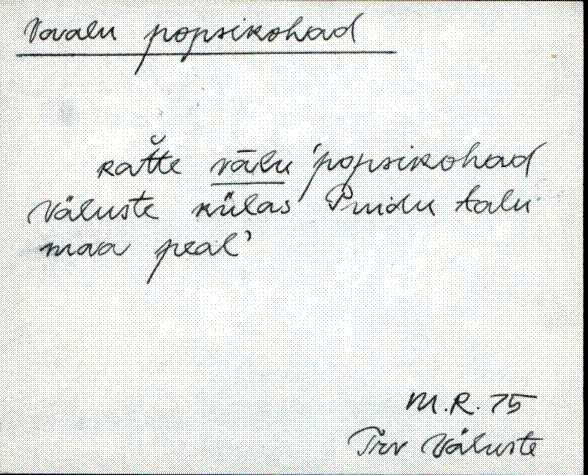 Vovalu popsikohad
katt̆e vālu 'popsikohad
Väluste külas Puidu talu
maa peal'
M.R. 75
Trv Väluste